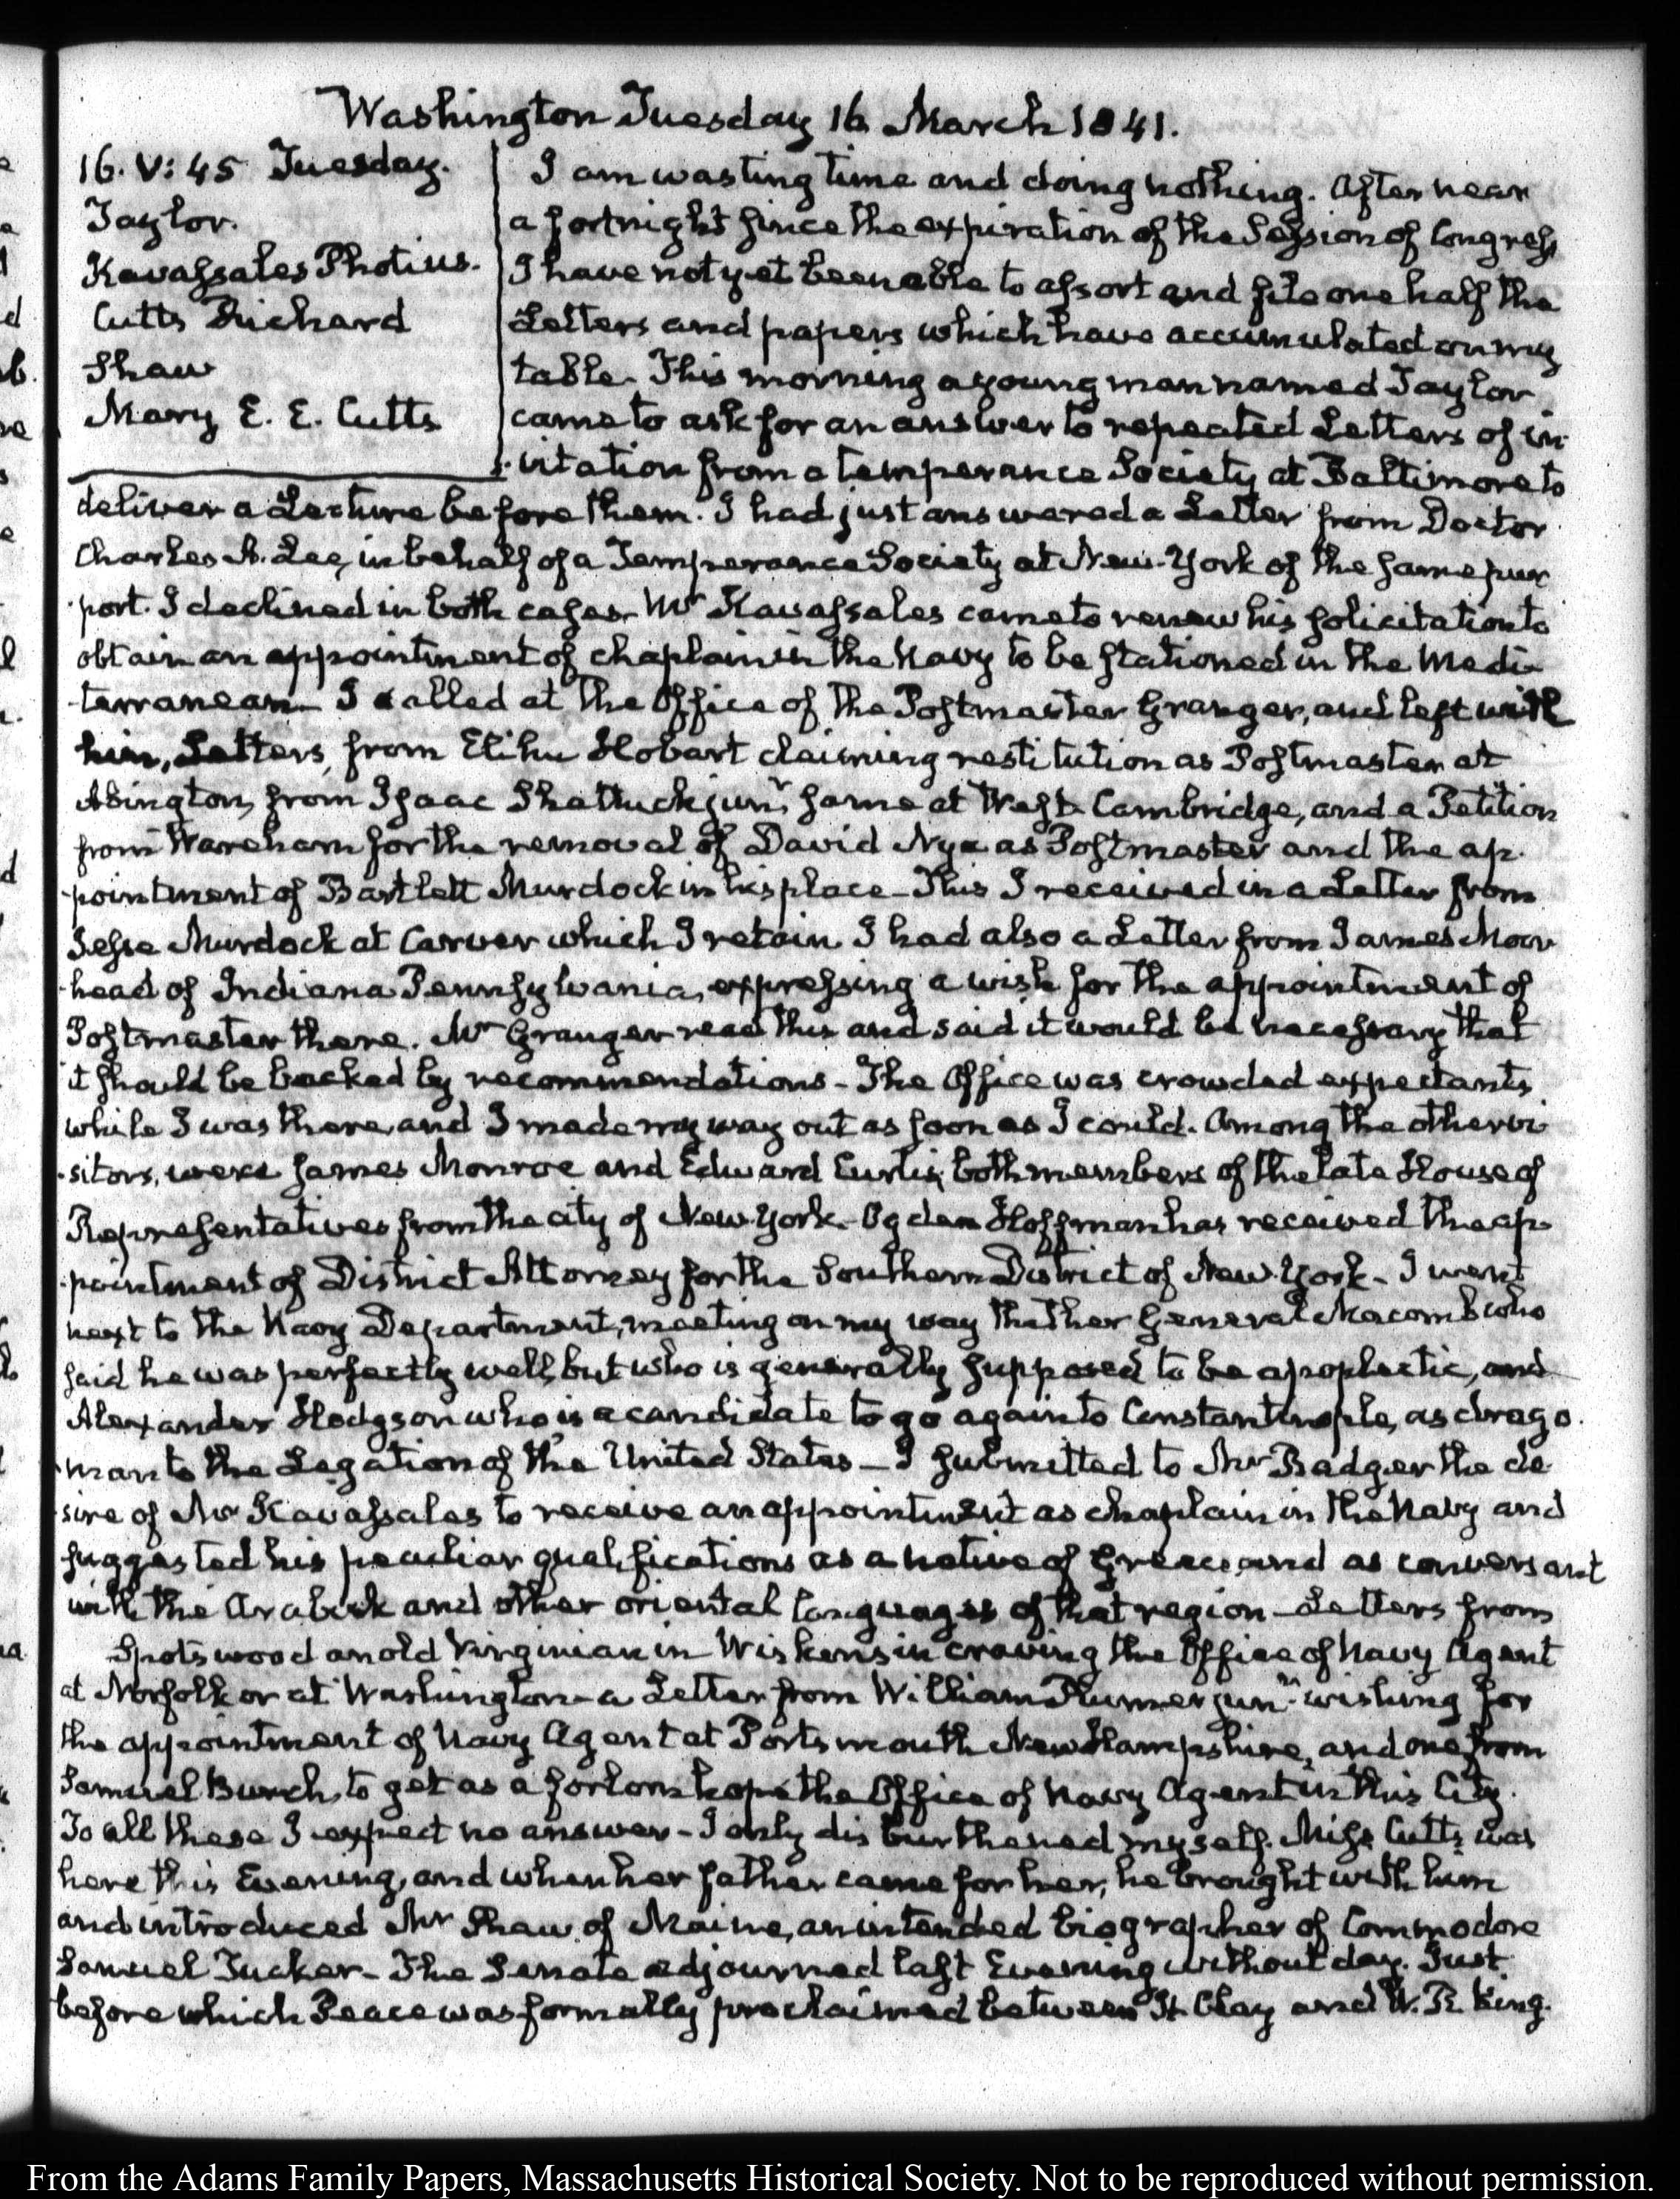 Washington Tuesday 16 March 1841.
16. V: 45 Tuesday.
Taylor.
Kavassales Photius.
Cutts Richard
Shaw
Mary E. E. Cutts
I am wasting time and doing nothing. After near
a fortnight since the expiration of the Session of Congress
I have not yet been able to assort and file one half the
Letters and papers which have accumulated on my
table. This morning a young man named Taylor
came to ask for an answer to repeated Letters of in-
-vitation from a temperance Society at Baltimore to
deliver a Lecture before them. I had just answered a Letter from Doctor
Charles A. Lee, in behalf of a Temperance Society at New-York of the same pur
-port. I declined in both cases. Mr Kavassales came to renew his solicitation to
obtain an appointment of chaplain in the Navy to be stationed in the Medi-
-terranean— I called at the Office of the Postmaster Granger, and left with
him, Letters, from Elihu Hobart claiming restitution as Postmaster at
Abington, from Isaac Shattuck junr. same at West-Cambridge, and a Petition
from Wareham for the removal of David Nye as Postmaster and the ap-
-pointment of Bartlett Murdock in his place— This I received in a Letter from
Jesse Murdock at Carver which I retain. I had also a Letter from James Moor
-head of Indiana Pennsylvania, expressing a wish for the appointment of
Postmaster there. Mr Granger read this and said it would be necessary that
it should be backed by recommendations— The Office was crowded expectants
while I was there, and I made my way out as soon as I could. Among the other vi
-sitors, were James Monroe and Edward Curtis, both members of the late House of
Representatives from the city of New-York— Ogden Hoffman has received the ap-
-pointment of District Attorney for the Southern District of New-York— I went
next to the Navy Department, meeting on my way thither General Macomb who
said he was perfectly well, but who is generally supposed to be apoplectic, and
Alexander Hodgson who is a candidate to go again to Constantinople, as drago-
-man to the Legation of the United States— I submitted to Mr Badger the de-
-sire of Mr Kavassales to receive an appointment as chaplain in the Navy and
suggested his peculiar qualifications as a native of Greece and as conversant
with the Arabick and other oriental languages of that region— Letters from
Spotswood an old Virginian in Wiskonsin craving the Office of Navy Agent
at Norfolk or at Washington— a Letter from William Plumer junr. wishing for
the appointment of Navy Agent at Portsmouth New Hampshire, and one from
Samuel Burch, to get as a forlorn hope the Office of Navy Agent in this City.
To all these I expect no answer— I only disburthened myself. Miss Cutts was
here this Evening, and when her father came for her, he brought with him
and introduced Mr Shaw of Maine, an intended biographer of Commodore
Samuel Tucker— The Senate adjourned last Evening without day. Just
before which Peace was formally proclaimed between H. Clay and W. R. King.
From the Adams Family Papers, Massachusetts Historical Society. Not to be reproduced without permission.